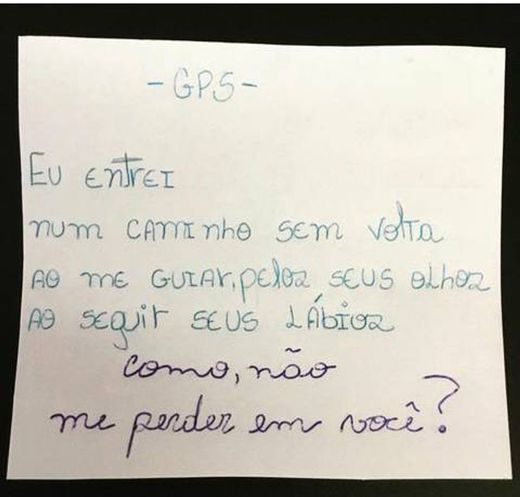 -GPS-
EU ENTREI
NUM CAMINHO SEM VOLTA
AO ME GUIAR, PELOS SEUS OLHOS
AO SEGUIR SEUS LÁBIOS
como, não
me perder em você?